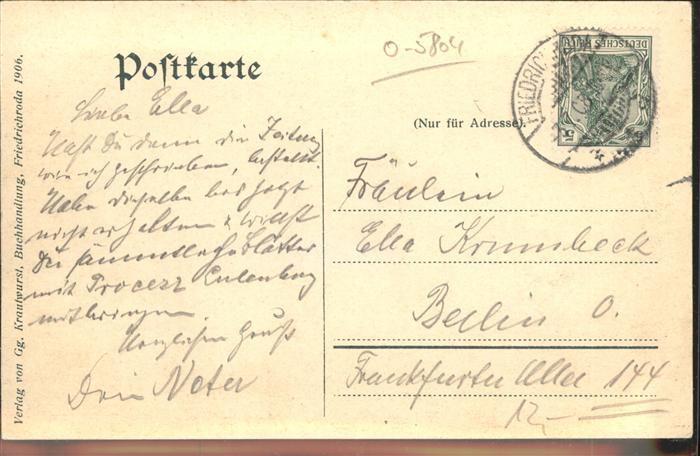 Verlag von Gg. Krautwurst, Buchhandlung, Friedrichroda 1906.
Postkarte
O-5804
DEUTSCHES REICH
5
FRIEDRICH
(Nur für Adresse).
Liebe Ella
Hast Du denn die Zeitung
wie ich geschrieben, bestellt.
Habe dieselbe bis jetzt
nicht erhalten & willst
Du sämmtliche Blätter
mit Procezz Eulenburg
mitbringen.
Herzlichen Gruß
Dein Vater
Fräulein
Ella Krumbeck
Berlin O.
Frankfurter Allee 144
12,-